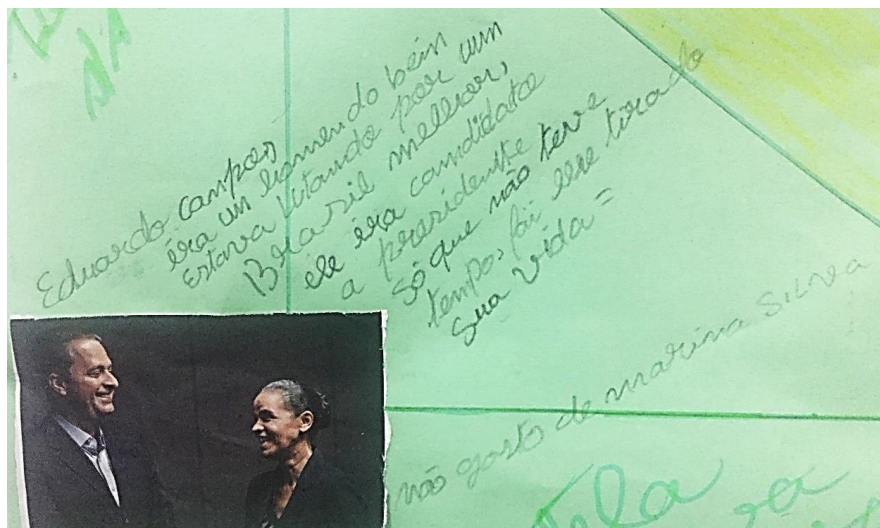 NA
Eduardo campos
éra um homem do bem
Estava lutando por um
Brasil melhor,
ele éra candidato
a presidente
só que não teve
tempo, foi lhe tirado
sua vida =
não gosto de marina Silva